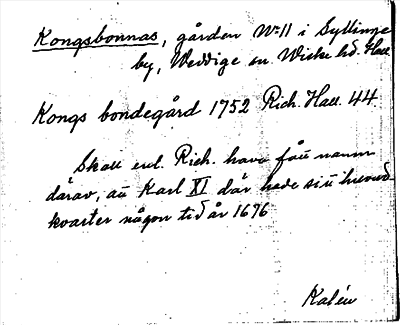 Kongsbonnas, gården Nº 11 i Syllinge
by, Weddige sn Wiske hd. Hall.
Kongs bondegård 1752 Rich. Hall. 44.
Skall enl. Rich. hava fått namn
därav, att Karl XI där hade sitt huvud-
kvarter någon tid år 1676
Kalén